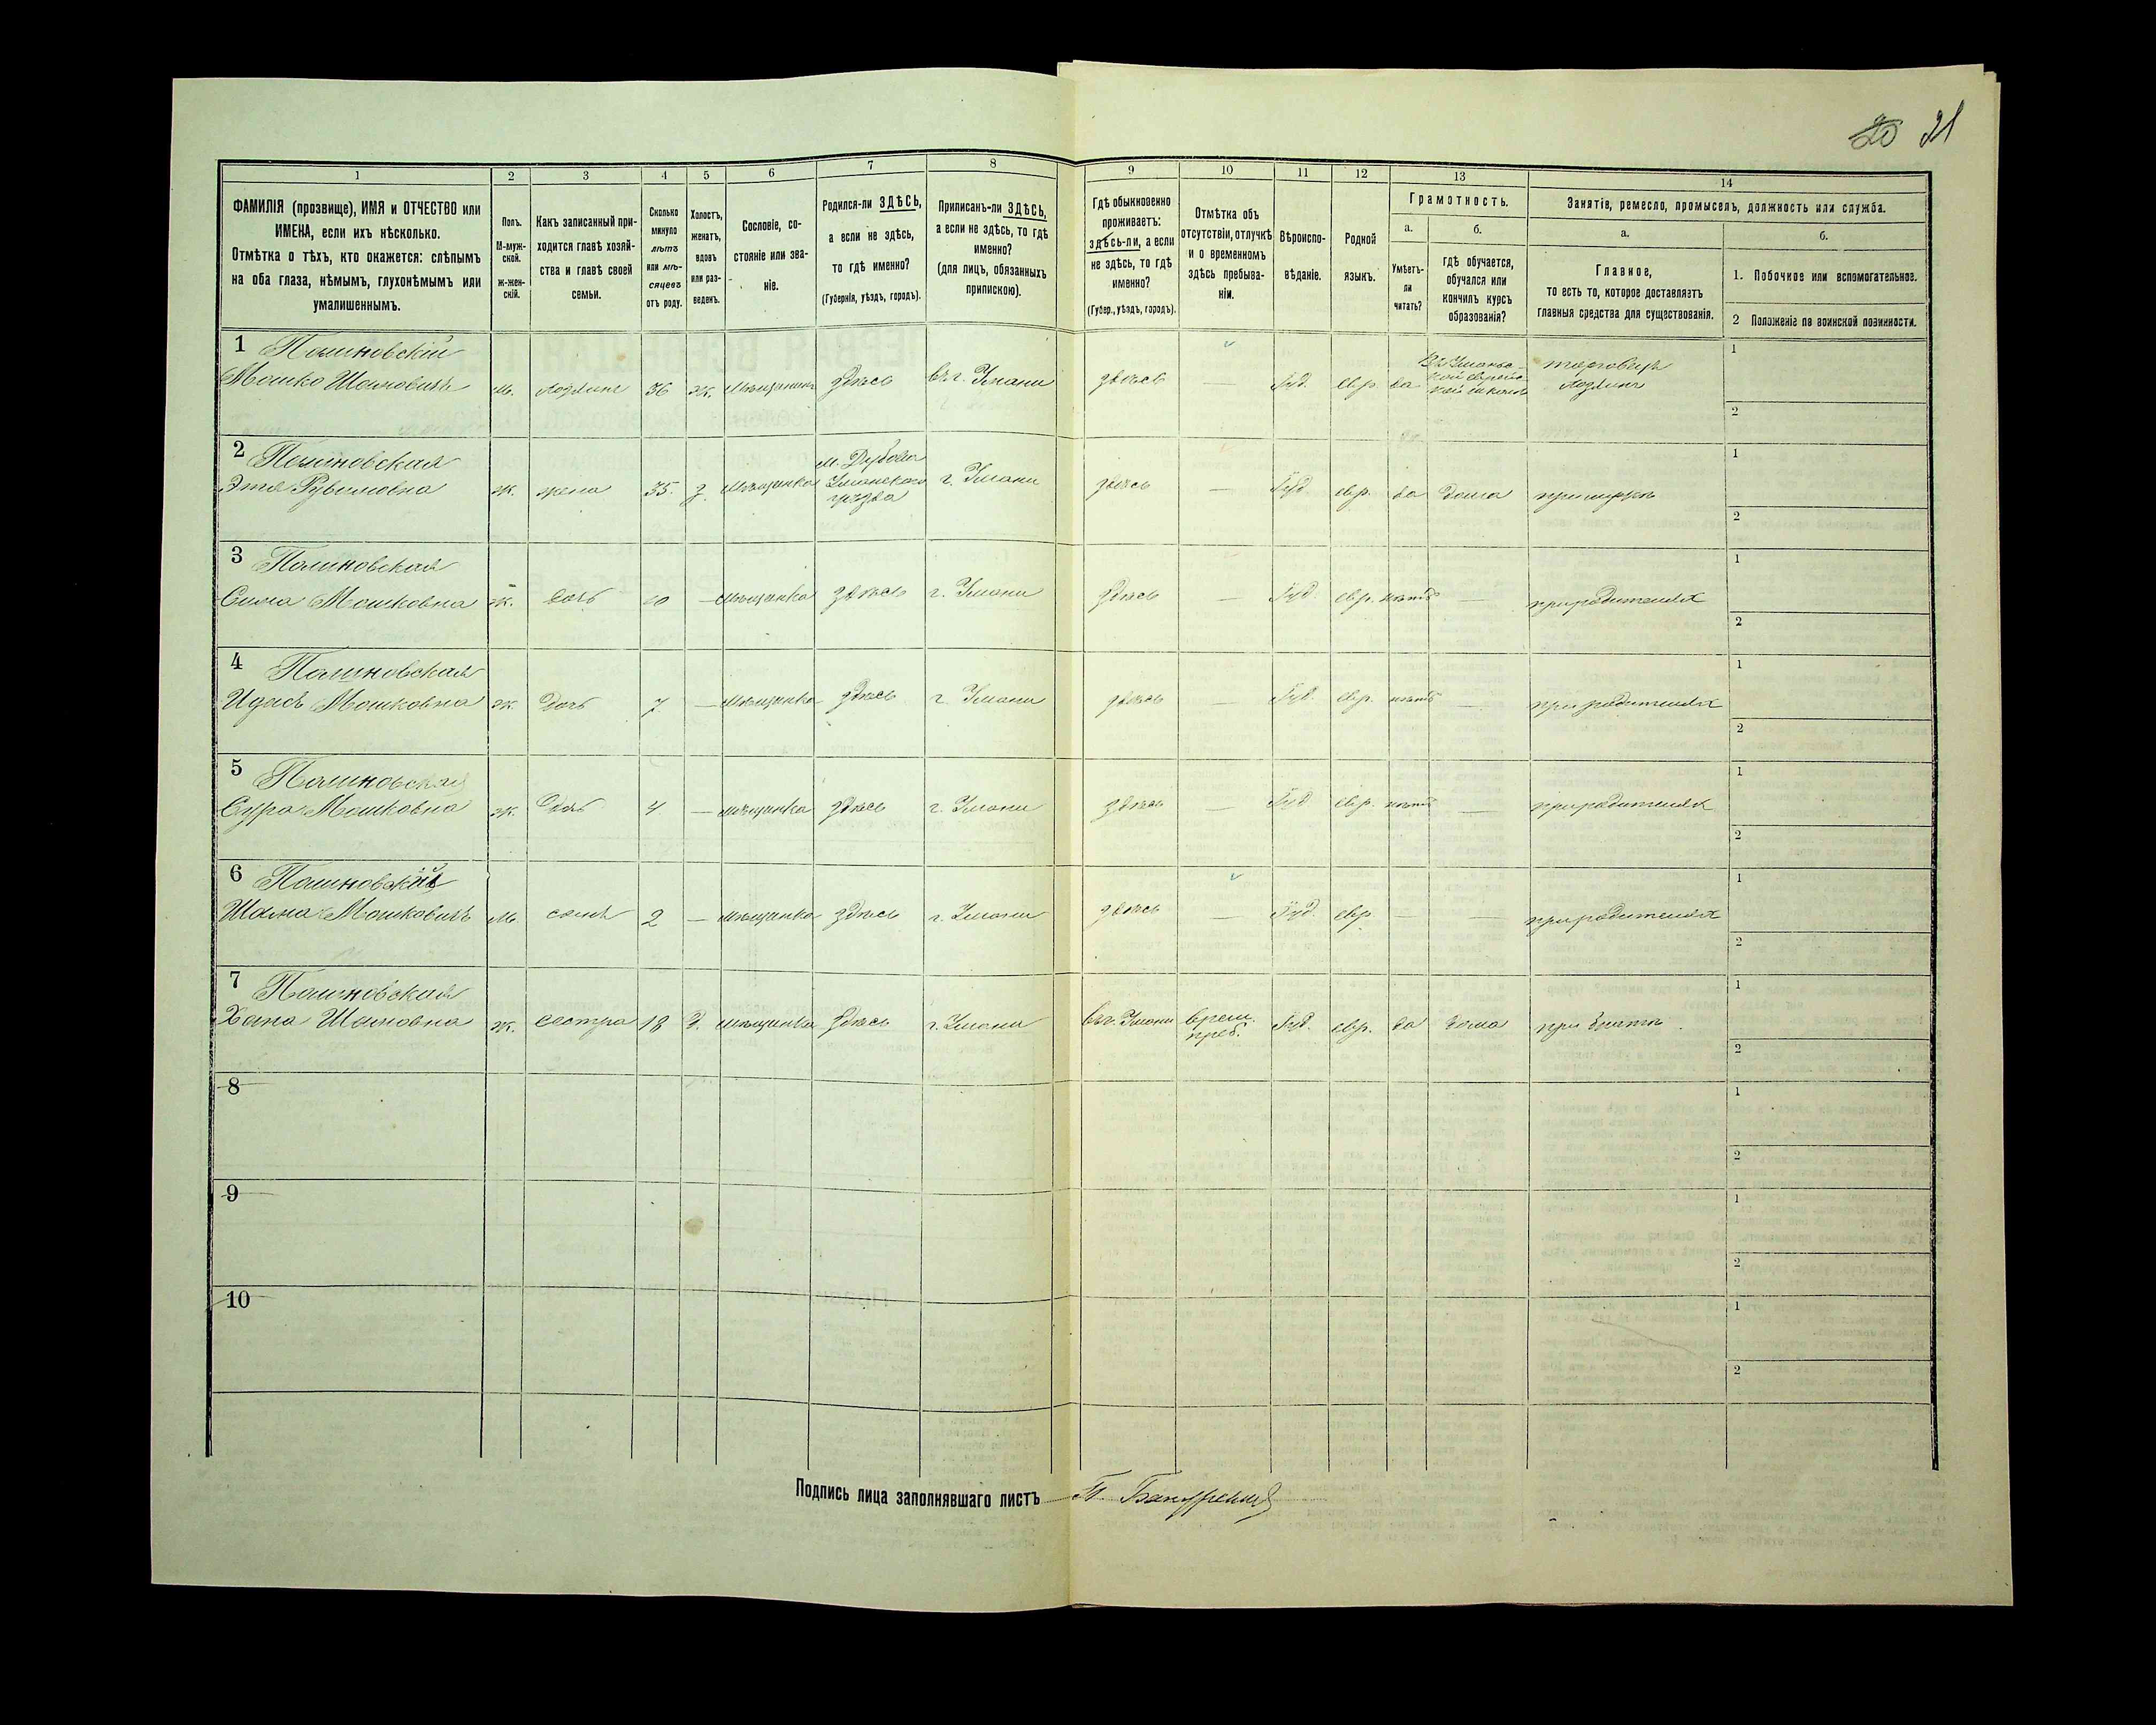 20 21
1 2 3 4 5 6 7 8 9 10 11 12 13 14
ФАМИЛІЯ (прозвище), ИМЯ и ОТЧЕСТВО или
ИМЕНА, если ихъ нѣсколько.
Отмѣтка о тѣхъ, кто окажется: слѣпымъ
на оба глаза, нѣмымъ, глухонѣмымъ или
умалишеннымъ.
Полъ.
М-муж-
ской.
ж-жен-
скій.
Какъ записанный при-
ходится главѣ хозяй-
ства и главѣ своей
семьи.
Сколько
минуло
лѣтъ
или мѣ-
сяцевъ
отъ роду.
Холостъ,
женатъ,
вдовъ
или раз-
веденъ.
Сословіе, со-
стояніе или зва-
ніе.
Родился-ли ЗДѢСЬ,
а если не здѣсь,
то гдѣ именно?
(Губернія, уѣздъ, городъ).
Приписанъ-ли ЗДѢСЬ,
а если не здѣсь, то гдѣ
именно?
(для лицъ, обязанныхъ
припискою).
Гдѣ обыкновенно
проживаетъ:
здѣсь-ли, а если
не здѣсь, то гдѣ
именно?
(Губер., уѣздъ, городъ).
Отмѣтка объ
отсутствіи, отлучкѣ
и о временномъ
здѣсь пребыва-
ніи.
Вѣроиспо-
вѣданіе.
Родной
языкъ.
Грамотность.
а.
Умѣетъ-
ли
читать?
б.
гдѣ обучается,
обучался или
кончилъ курсъ
образованія?
Занятіе, ремесло, промыселъ, должность или служба.
а.
Главное,
то есть то, которое доставляетъ
главныя средства для существованія.
б.
1. Побочное или вспомогательное.
2 Положеніе по воинской повинности.
1 Полиновскій
Мошко Шаиовичъ м. хозяинъ 36 ж. мѣщанинъ здѣсь въ г. Умани здѣсь — Іуд. евр. да
Въ Уманьс-
кой еврейс-
кой школѣ
торговецъ
хозяинъ
1
2
2 Полиновская
Этя Рувимовна ж. жена 35 з. мѣщанка
м. Дубова
Уманскаго
уѣзда
г. Умани здѣсь — Іуд. евр. да дома при мужѣ
1
2
3 Полиновская
Сима Мошковна ж. дочь 10 — мѣщанка здѣсь г. Умани здѣсь — Іуд. евр. нѣтъ — при родителях
1
2
4 Полиновская
Идась Мошковна ж. дочь 7 — мѣщанка здѣсь г. Умани здѣсь — Іуд. евр. нѣтъ — при родителях
1
2
5 Полиновская
Сура Мошковна ж. дочь 4 — мѣщанка здѣсь г. Умани здѣсь — Іуд. евр. нѣтъ — при родителях
1
2
6 Полиновскій
Мошковичъ м. сынъ 2 — мѣщанка здѣсь г. Умани здѣсь — Іуд. евр. — — при родителях
1
2
7 Полиновская
Хана Шаиовна ж. сестра 18 д. мѣщанка здѣсь г. Умани въ г. Умани
врем.
преб.
Іуд. евр. да дома при братѣ
1
2
8
1
2
9
1
2
10
1
2
Подпись лица заполнявшаго листъ